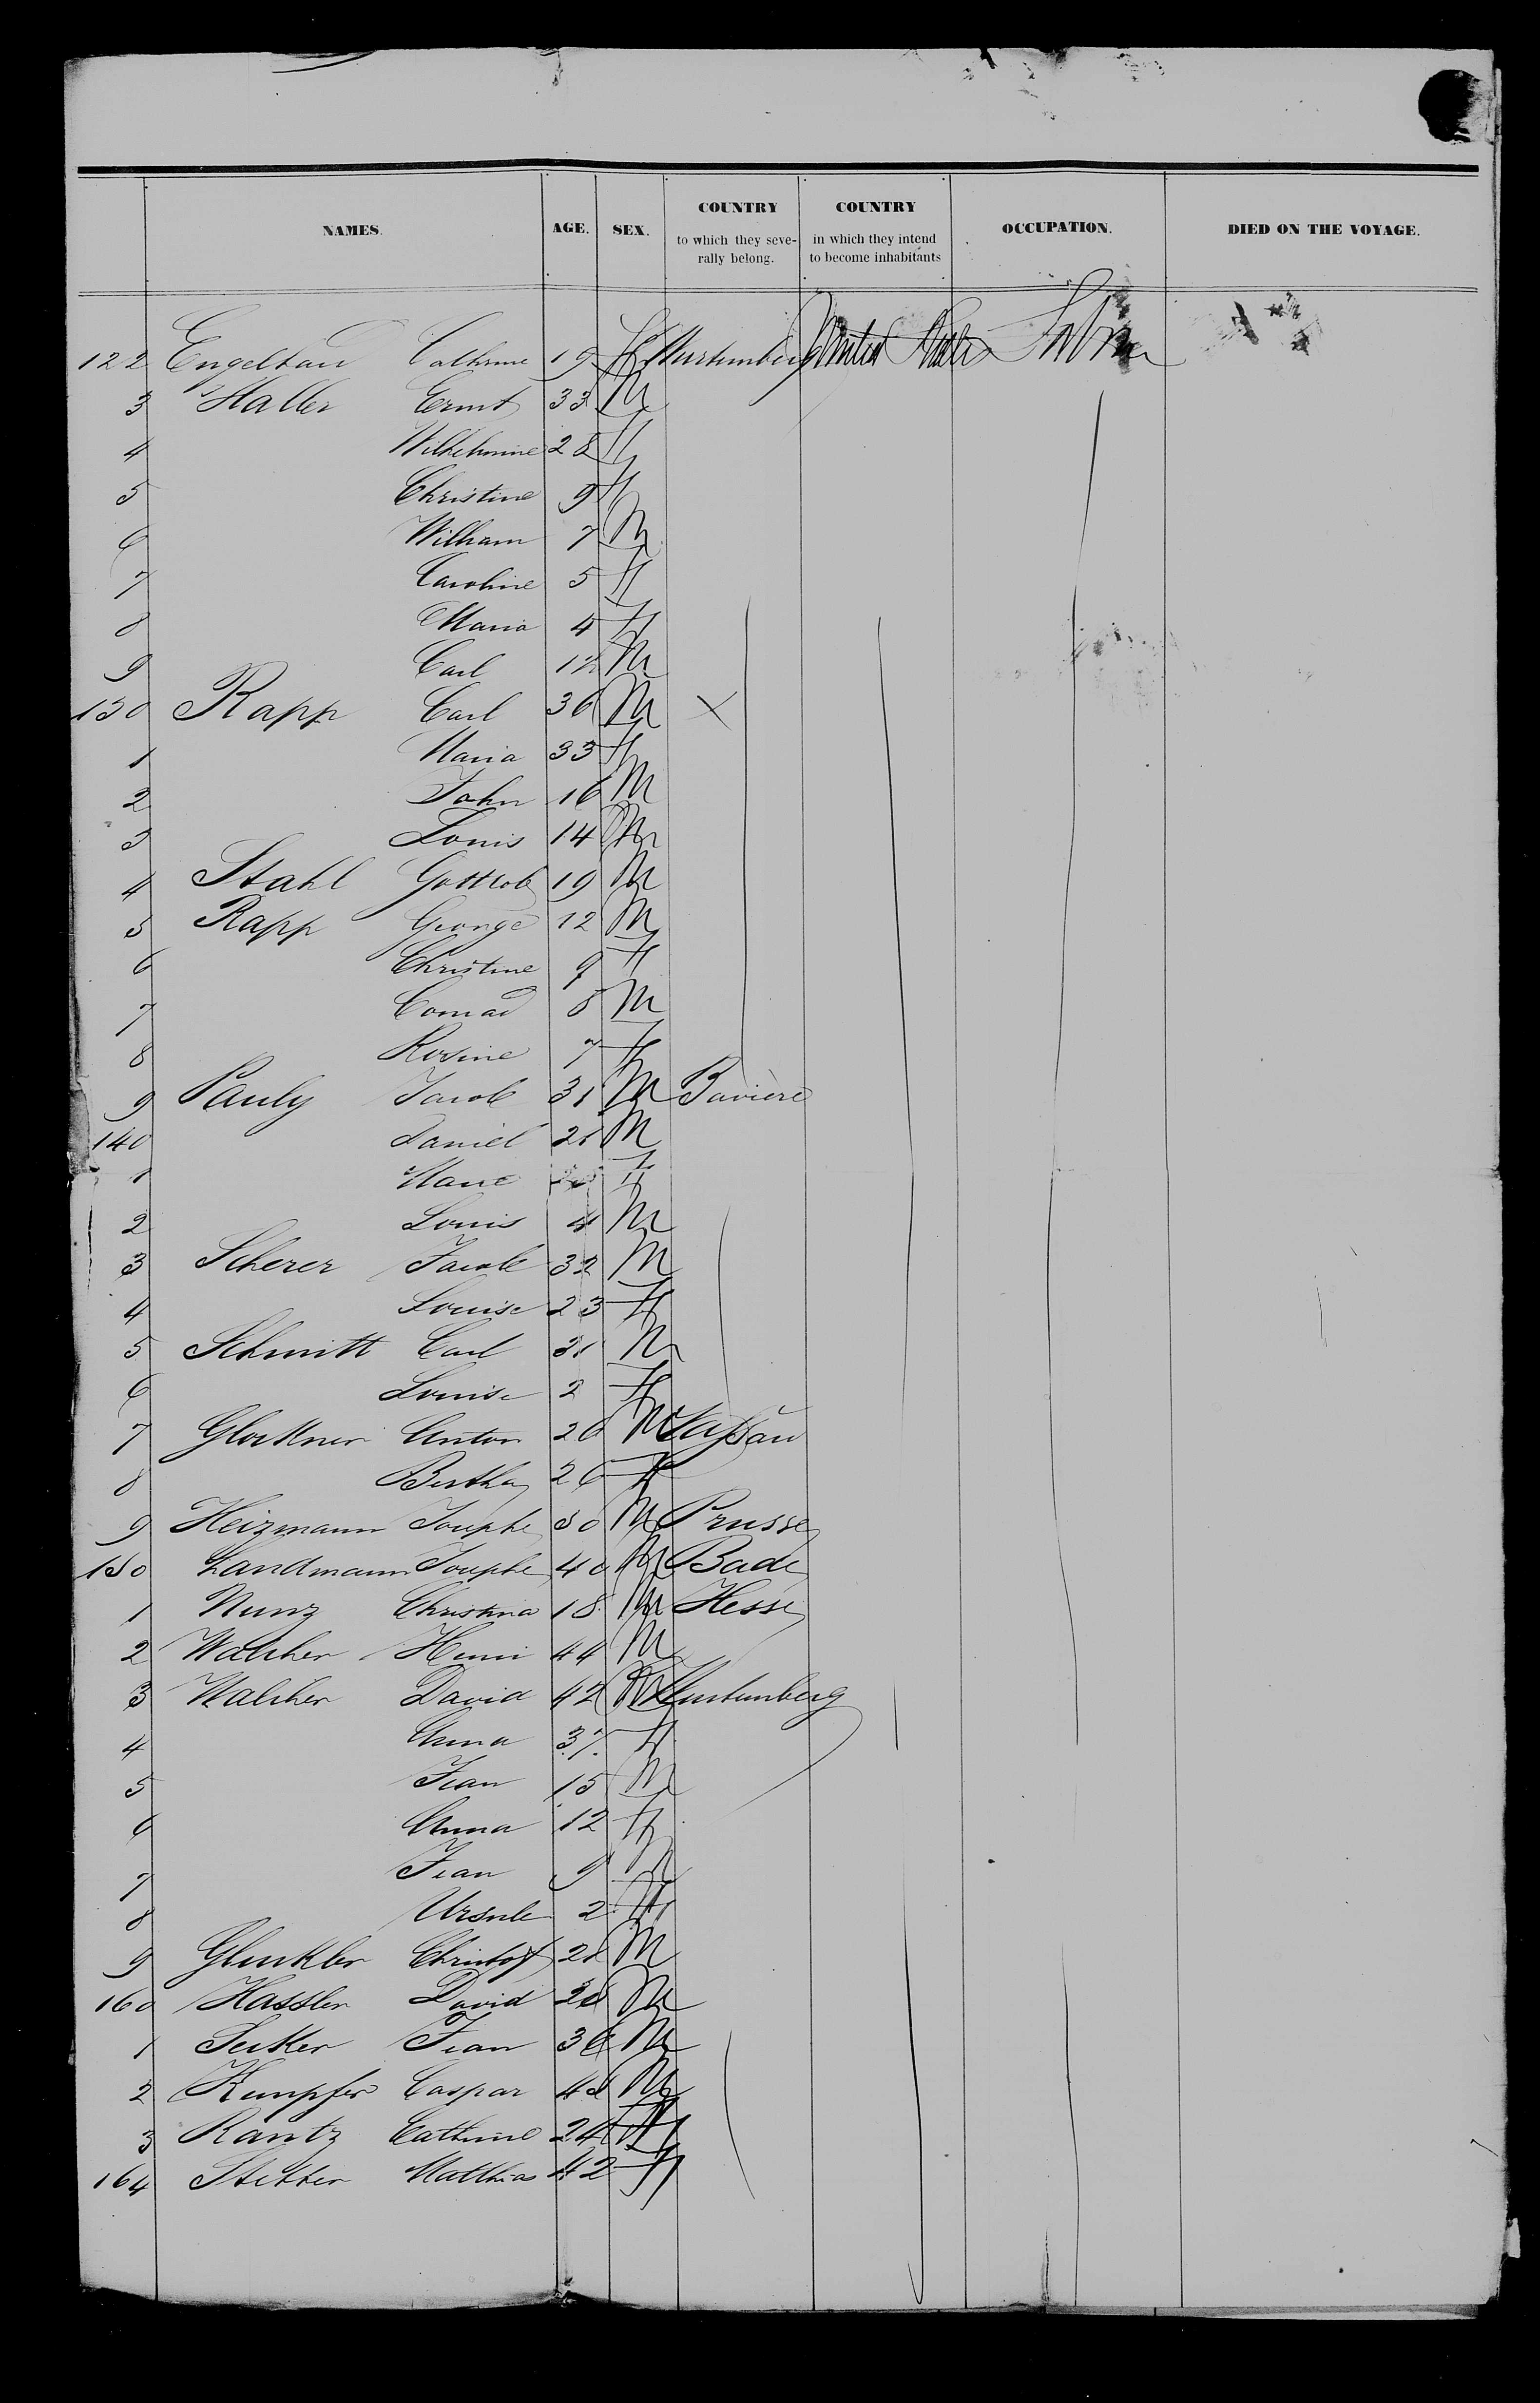 NAMES. AGE. SEX. COUNTRY to which they severally belong. COUNTRY in which they intend to become inhabitants OCCUPATION. DIED ON THE VOYAGE.
122 Engelhard Cathrine 19 f Wurtemberg United States
3 Haller Ernst 33 M
4 Wilhelmine 28 f
5 Christine 9 f
6 William 7 M
7 Caroline 5 f
8 Maria 4 f
9 Carl M
130 Rapp Carl 36 M X
1 Maria 33 f
2 John 16 M
3 Louis 14 M
4 Stahl Gottlob 19 M
5 Rapp George 12 M
6 Christine 9 f
7 Conrad 8 M
8 Rosine 7 f
9 Pauly Jacob 31 M Bavière
140 Daniel 21 M
1 Marie f
2 Louis 4 M
3 Scherer Jacob 32 M
4 Louise 23 f
5 Schmitt Carl M
6 Louise 2 f
7 Glockner Anton 26 M Nassau
8 Bertha 26 f
9 Heizmann Josephe 30 M Prusse
150 Landmann Josephe 40 M Bade
1 Nunz Christina 18 M Hesse
2 Walcher Henri 44 M
3 Walcher David 42 M Wurtemberg
4 Anna 37 f
5 Jean 15 M
6 Anna 12 f
7 Jean 9 M
8 Ursule 2 f
9 Christof M
160 Hassler David M
1 Jean 36 M
2 Kempfer Caspar M
3 Rantz Cathrine 24 f
164 Stetter Matthias 42 f